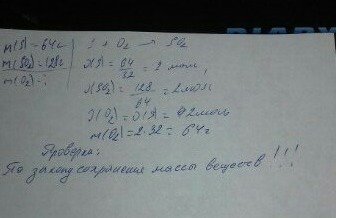 m(S) = 64г
m(SO₂) = 128г
m(O₂) - ?
S + O₂ → SO₂
ν(S) = 64/32 = 2 моль,
ν(SO₂) = 128/64 = 2 моль
ν(O₂) = ν(S) = 2 моль
m(O₂) = 2·32 = 64г
Проверка:
По закону сохранения массы веществ!!!